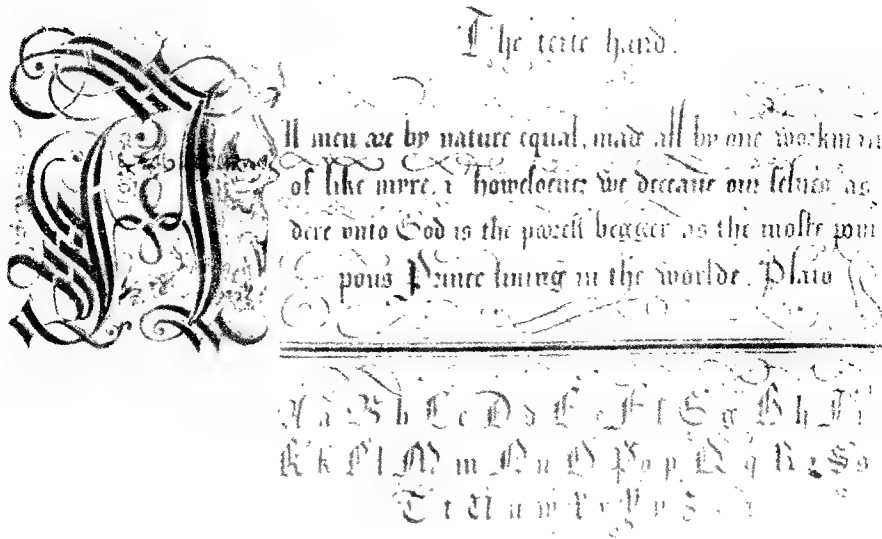 The texte hand.
All men are by nature equal, made all by one workman
of like myre, & howsoeuer we deceaue our selues as
dere vnto God is the poorest begger as the moste pom
pous Prince liuing in the worlde. Plato
A a B b C c D d E e F f G g H h I i
K k L l M m N n O o P p Q q R r S s
T t U u w X x Y y Z